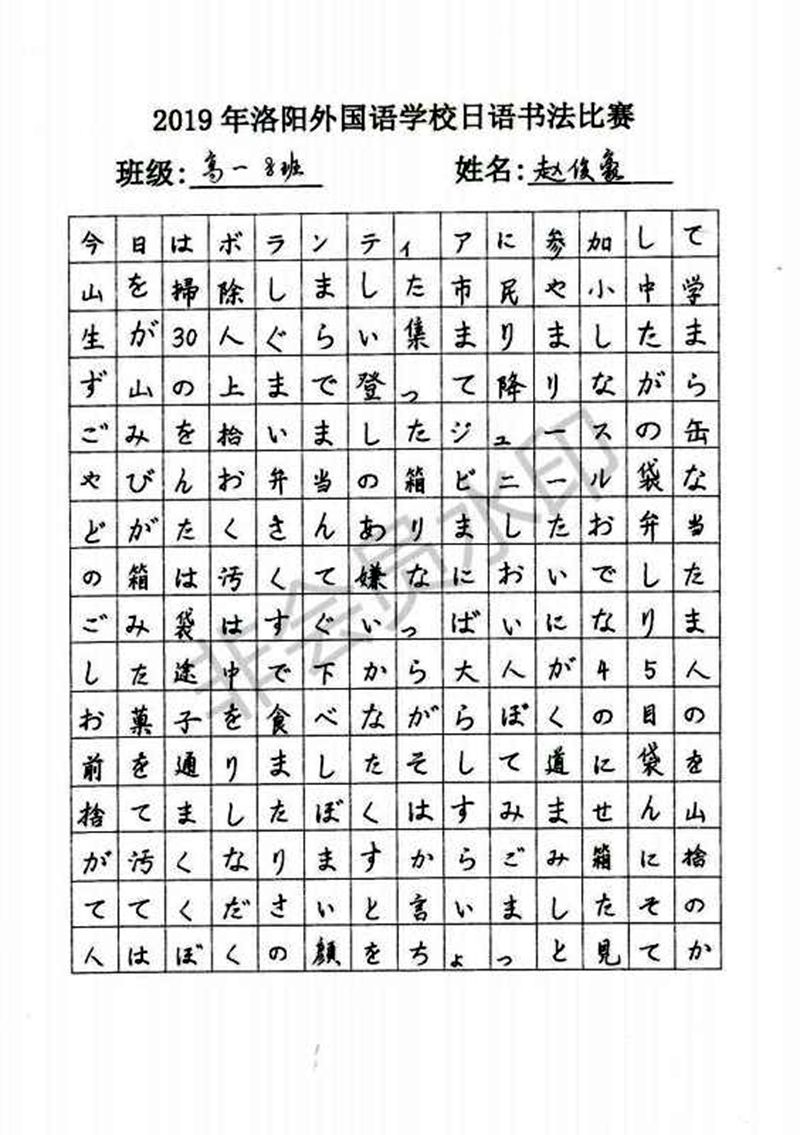 2019年洛阳外国语学校日语书法比赛
班级：高一8班 姓名：赵俊豪
今日はボランティアに参加して
山を掃除しました市民や小中学
生が30人ぐらい集まりましたま
ず山の上まで登って降りながら
ごみを拾いましたジュースの缶
やびんお弁当の箱ビニール袋な
どがたくさんありましたお弁当
の箱は汚くて嫌なにおいでした
ごみ袋はすぐいっぱいになりま
した途中で下から大人が45人
お菓子を食べながらぼくの目の
前を通りましたそして道に袋を
捨てましたぼくはすみません山
が汚くなりますからごみ箱に捨
ててくださいと言いましたその
人はぼくの顔をちょっと見てか
非会员水印